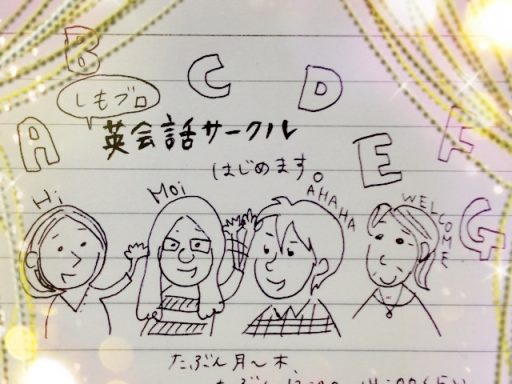 A B C D E F G
しもブロ
英会話サークル
はじめます。
Hi
Moi
AHAHA
WELCOME
たぶん月〜木、